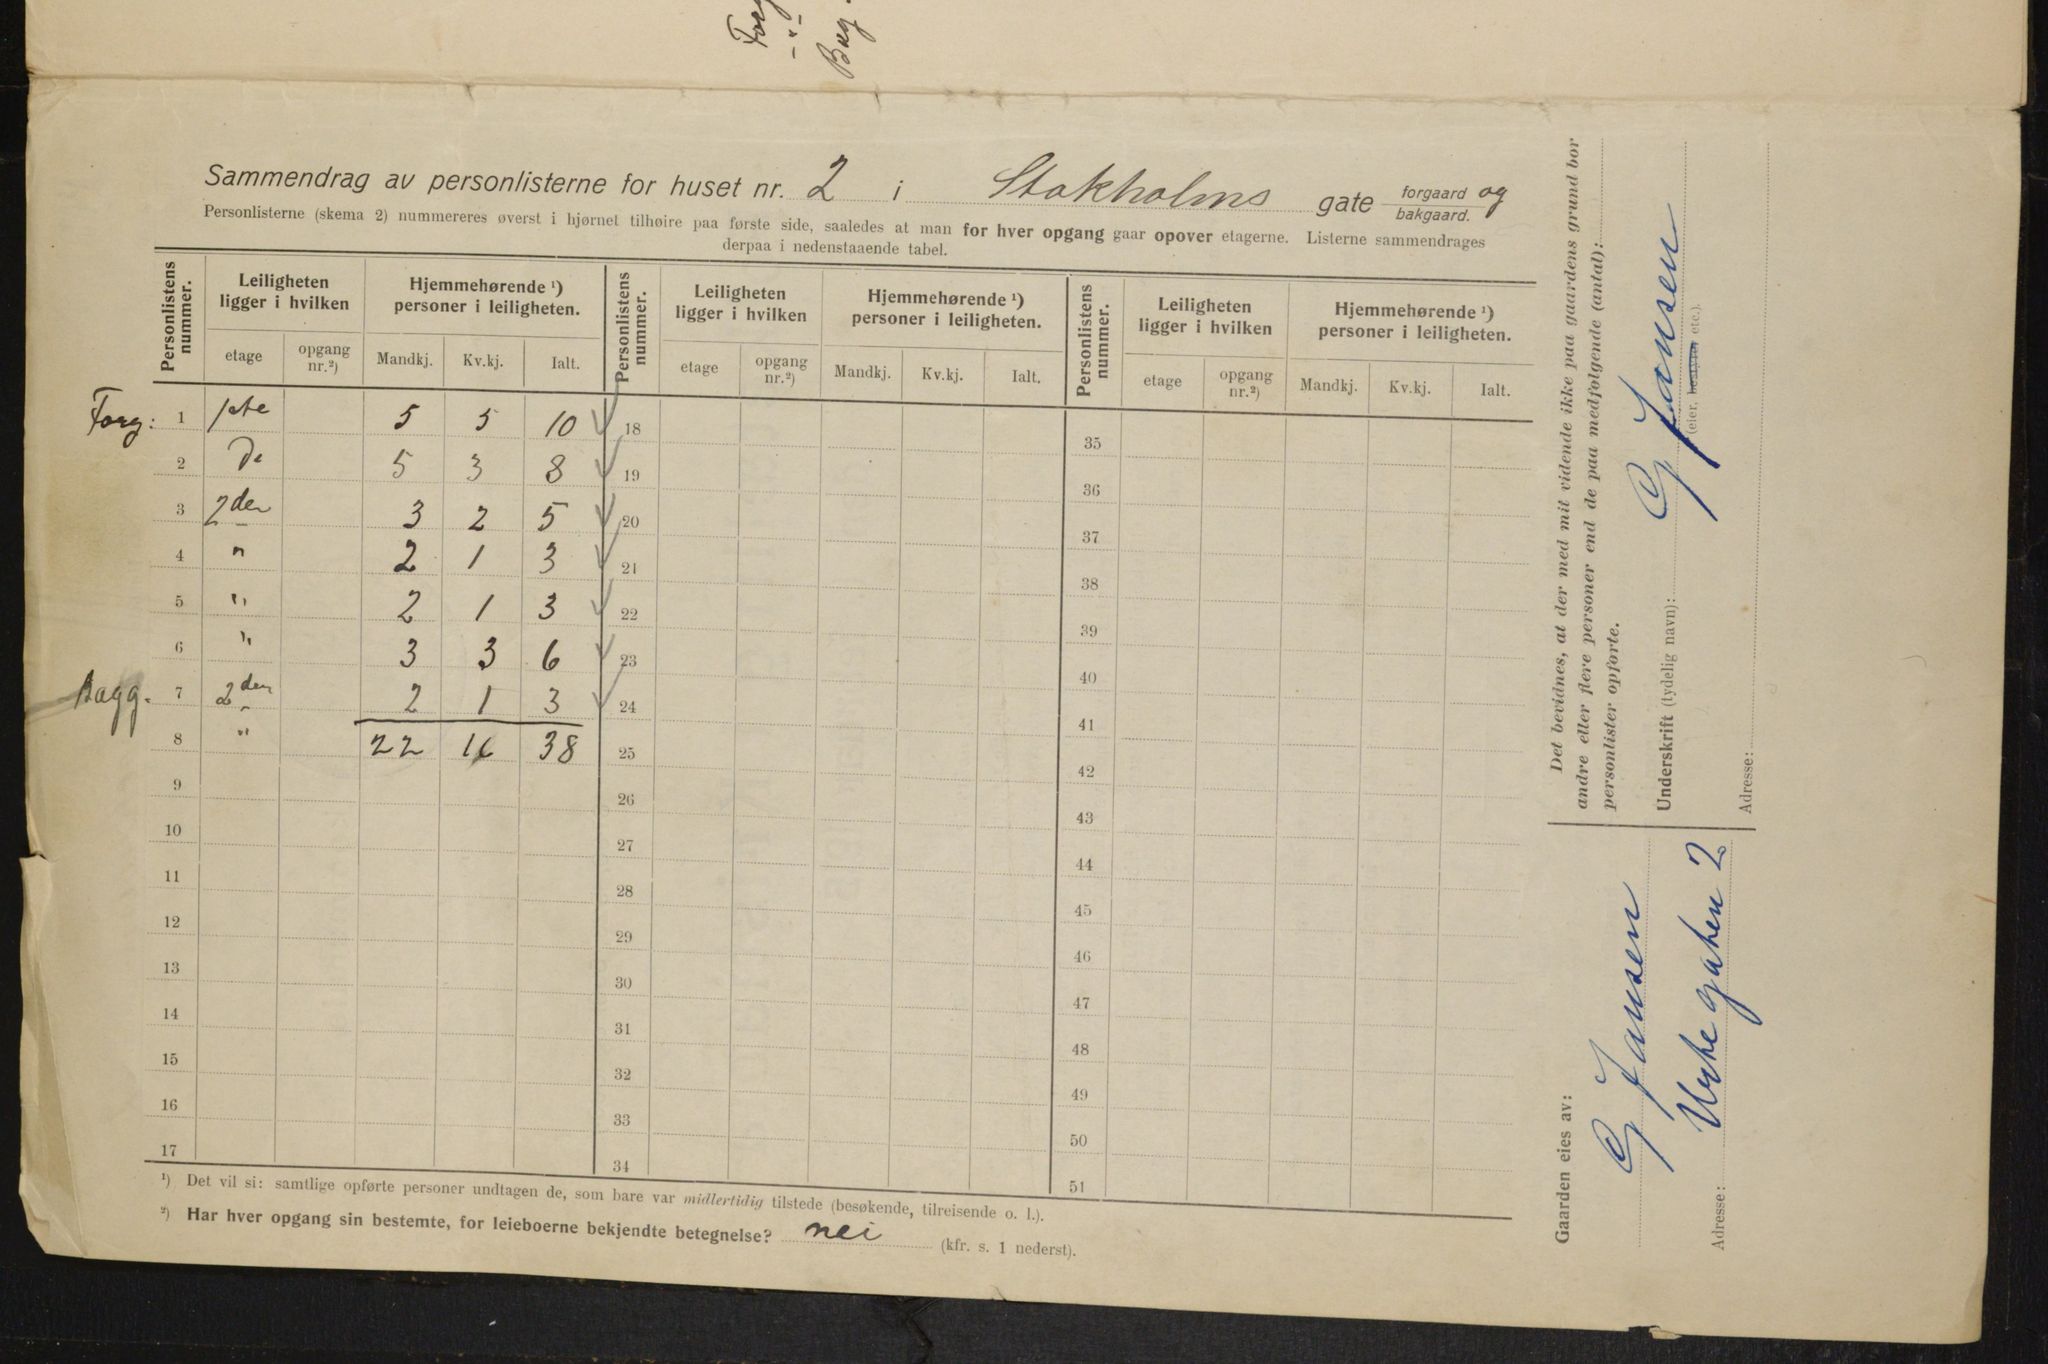 Forg
- " -
Bag
Sammendrag av personlisterne for huset nr. 2 i Stokholms gate forgaard og bakgaard.
Personlisterne (skema 2) nummereres øverst i hjørnet tilhøire paa første side, saaledes at man for hver opgang gaar opover etagerne. Listerne sammendrages
derpaa i nedenstaaende tabel.
Personlistens nummer. Leiligheten ligger i hvilken Hjemmehørende ¹) personer i leiligheten. Personlistens nummer. Leiligheten ligger i hvilken Hjemmehørende ¹) personer i leiligheten. Personlistens nummer. Leiligheten ligger i hvilken Hjemmehørende ¹) personer i leiligheten.
etage opgang nr.²) Mandkj. Kv.kj. Ialt. etage opgang nr.²) Mandkj. Kv.kj. Ialt. etage opgang nr.²) Mandkj. Kv.kj. Ialt.
Forg: 1 1ste 5 5 10 18 35
2 Do 5 3 8 19 36
3 2den 3 2 5 20 37
4 " 2 1 3 21 38
5 " 2 1 3 22 39
6 " 3 3 6 23 40
Bagg. 7 2den 2 1 3 24 41
8 " 22 16 38 25 42
9 26 43
10 27 44
11 28 45
12 29 46
13 30 47
14 31 48
15 32 49
16 33 50
17 34 51
¹) Det vil si: samtlige opførte personer undtagen de, som bare var midlertidig tilstede (besøkende, tilreisende o. l.).
²) Har hver opgang sin bestemte, for leieboerne bekjendte betegnelse? nei (kfr. s. 1 nederst).
Det bevidnes, at der med mit vidende ikke paa gaardens grund bor
andre eller flere personer end de paa medfølgende (antal):
personlister opførte.
Underskrift (tydelig navn): G Jansen
(eier, bestyrer etc.).
Adresse:
Gaarden eies av:
G Jansen
Adresse: Urtegaten 2